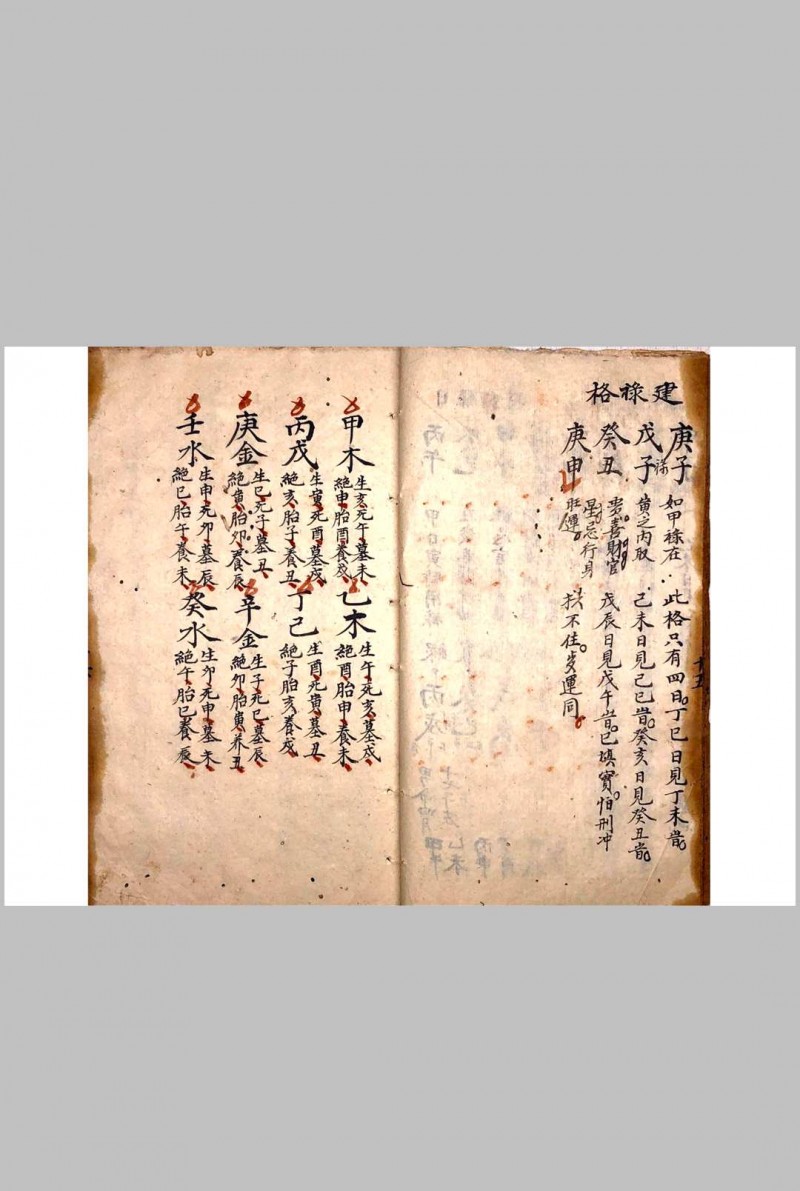 建祿格
庚子
如甲祿在
戊子
寅之丙取
癸丑
要喜財官
星忌行身
庚申
旺運。
此格只有四日。丁巳日見丁未時。
己未日見己巳時。癸亥日見癸丑時。
戊辰日見戊午時。巳填實。怕刑冲
扶不住。歲運同。
甲木
生亥死午墓未
絕申胎酉養戌
乙木
生午死亥墓戌
絕酉胎申養未
丙戊
生寅死酉墓戌
絕亥胎子養丑
丁己
生酉死寅墓丑
絕子胎亥養戌
庚金
生巳死子墓丑
絕寅胎卯養辰
辛金
生子死巳墓辰
絕卯胎寅养丑
壬水
生申死卯墓辰
絕巳胎午養未
癸水
生卯死申墓未
絕午胎巳養辰